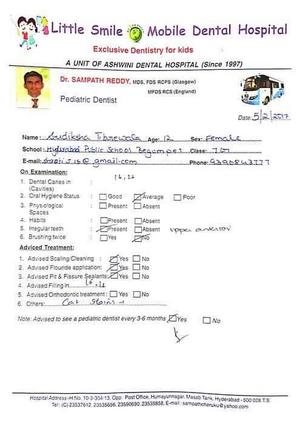 Little Smile Mobile Dental Hospital
Exclusive Dentistry for kids
A UNIT OF ASHWINI DENTAL HOSPITAL (Since 1997)
Dr. SAMPATH REDDY, MDS, FDS RCPS (Glasgow)
MFDS RCS (England)
Pediatric Dentist
Date: 5/2/2017
Name: Sudiksha Age: 12 Sex: Female
School: Hyderabad Public School Begumpet Class: 7
E-mail: @gmail.com Phone:
On Examination:
1. Dental Caries in (Cavities)
2. Oral Hygiene Status Good Average Poor
3. Physiological Spaces Present Absent
4. Habits Present Absent
5. Irregular teeth Present Absent upper
6. Brushing twice Yes No
Adviced Treatment:
1. Advised Scaling/Cleaning Yes No
2. Advised Flouride application Yes No
3. Advised Pit & Fissure Sealants Yes No
4. Advised Filling in
5. Advised Orthodontic treatment Yes No
6. Others:
Note: Advised to see a pediatric dentist every 3-6 months Yes No
Hospital Address-H.No. 10-3-304-13, Opp. Post Office, Humayunnagar, Masab Tank, Hyderabad - 500 028 T.S.
Tel: (C) 23537612, 23535856, 23590690, 23535858, E-mail: sampathcheruku@yahoo.com